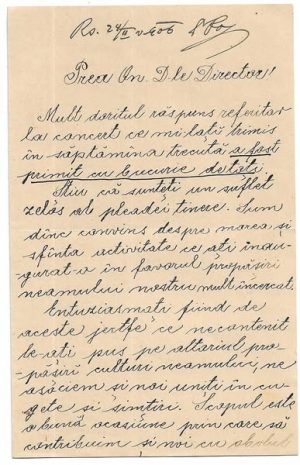 Prea On. D-le Director!
Mult doritul răspuns referitar
la concert ce mi lați trimis
în săptămîna trecută a fost
primit cu bucurie de toți.
Știu că sunteți un suflet
zelos al pleadei tinere. Sum
dinc convins despre marea și
sfînta activitate ce ați inau-
gurat-o în favorul propășirii
neamului nostru mult încercat.
Entuziasmați fiind de
aceste jertfe ce necontenit
le-ați pus pe altariul pro-
pășirii culturii neamului, ne
asociem și noi uniți în cu-
gete și simțiri. Scopul este
o bună ocasiune prin care să
contribuim și noi cu obolul